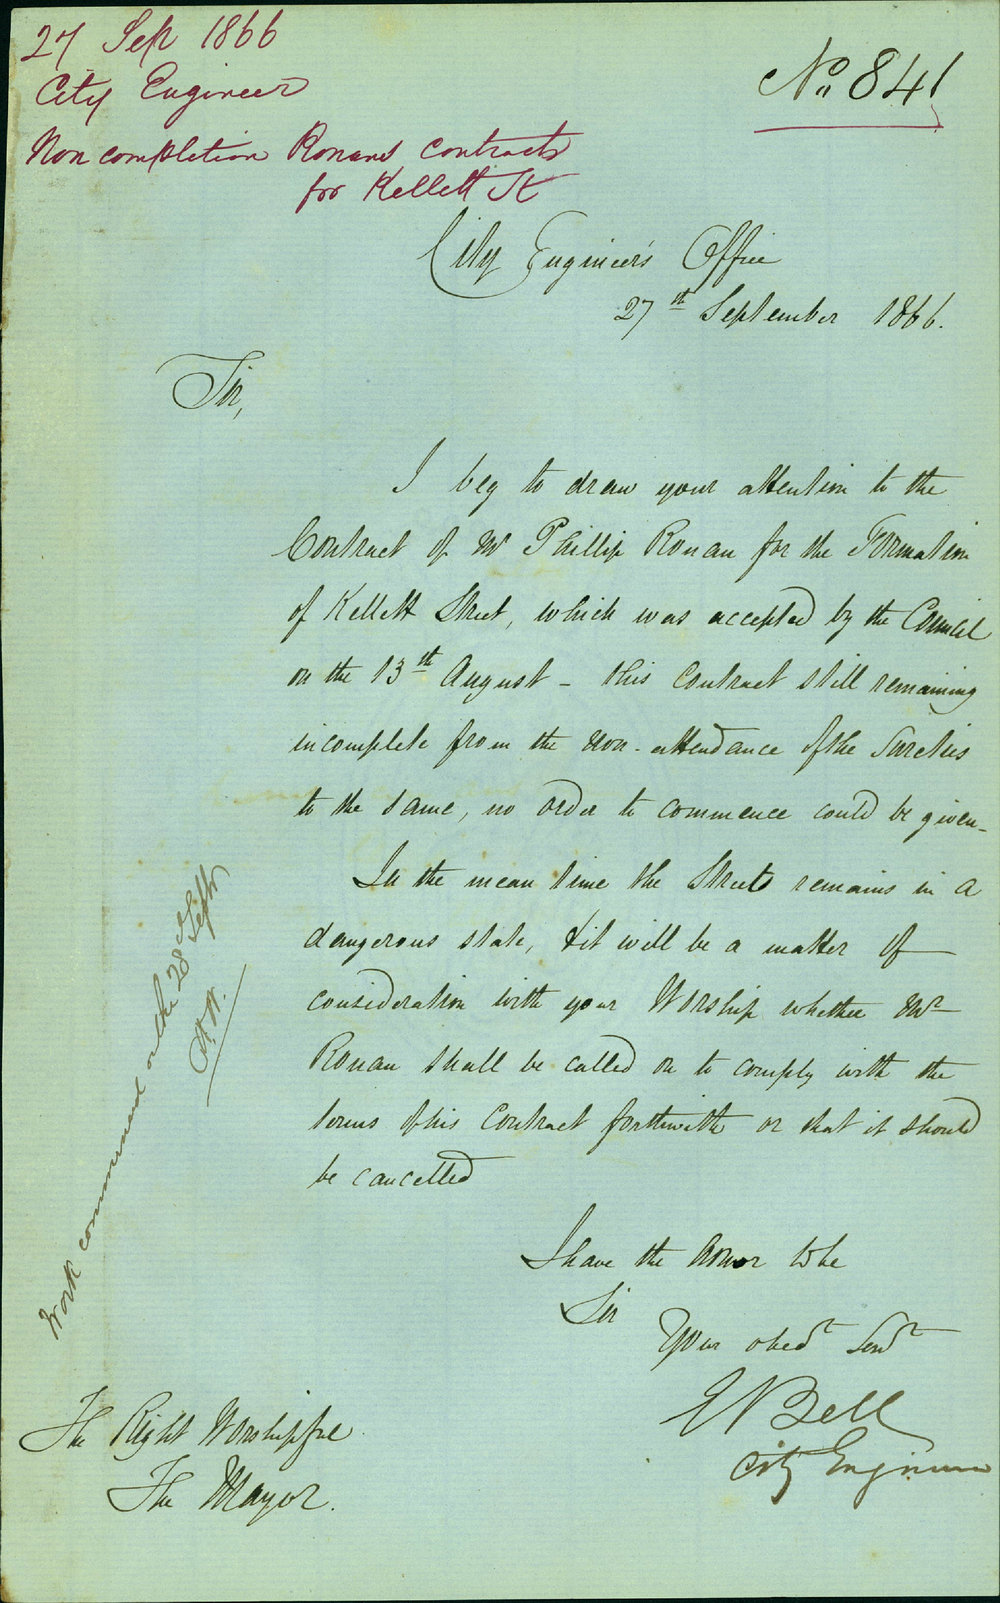 27 Sep 1866
City Engineer
Non completion Ronans contracts
for Kellett St
No 841
City Engineer's Office
27th September 1866.
Sir,
I beg to draw your attention to the
Contract of Mr Phillip Ronan for the Formation
of Kellett Street, which was accepted by the Council
on the 13th August - this Contract still remaining
incomplete from the non-attendance of the Sureties
to the same, no order to commence could be given-
In the mean time the Street remains in a
dangerous state, & it will be a matter of
consideration with your Worship whether Mr
Ronan shall be called on to comply with the
terms of his Contract forthwith or that it should
be cancelled
I have the honor to be
Sir
Your obedt Servt
E Bell
City Engineer
The Right Worshipful
The Mayor.
Work commenced on the 28th Septr